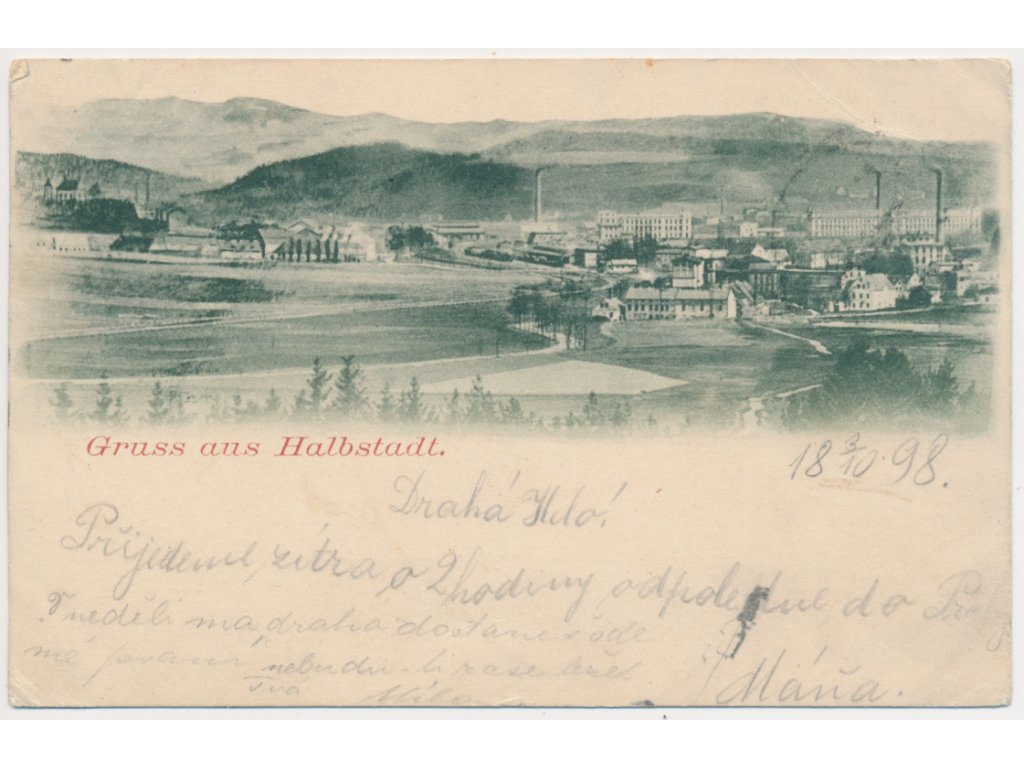 Gruss aus Halbstadt.
18 9/10 98.
Drahá Milo!
Přijedeme zítra o 2 hodiny odpoledne do Prahy
V neděli má drahá dostaneš ode
mé psaní nebudu-li zase
Tvá Mila
Máňa.